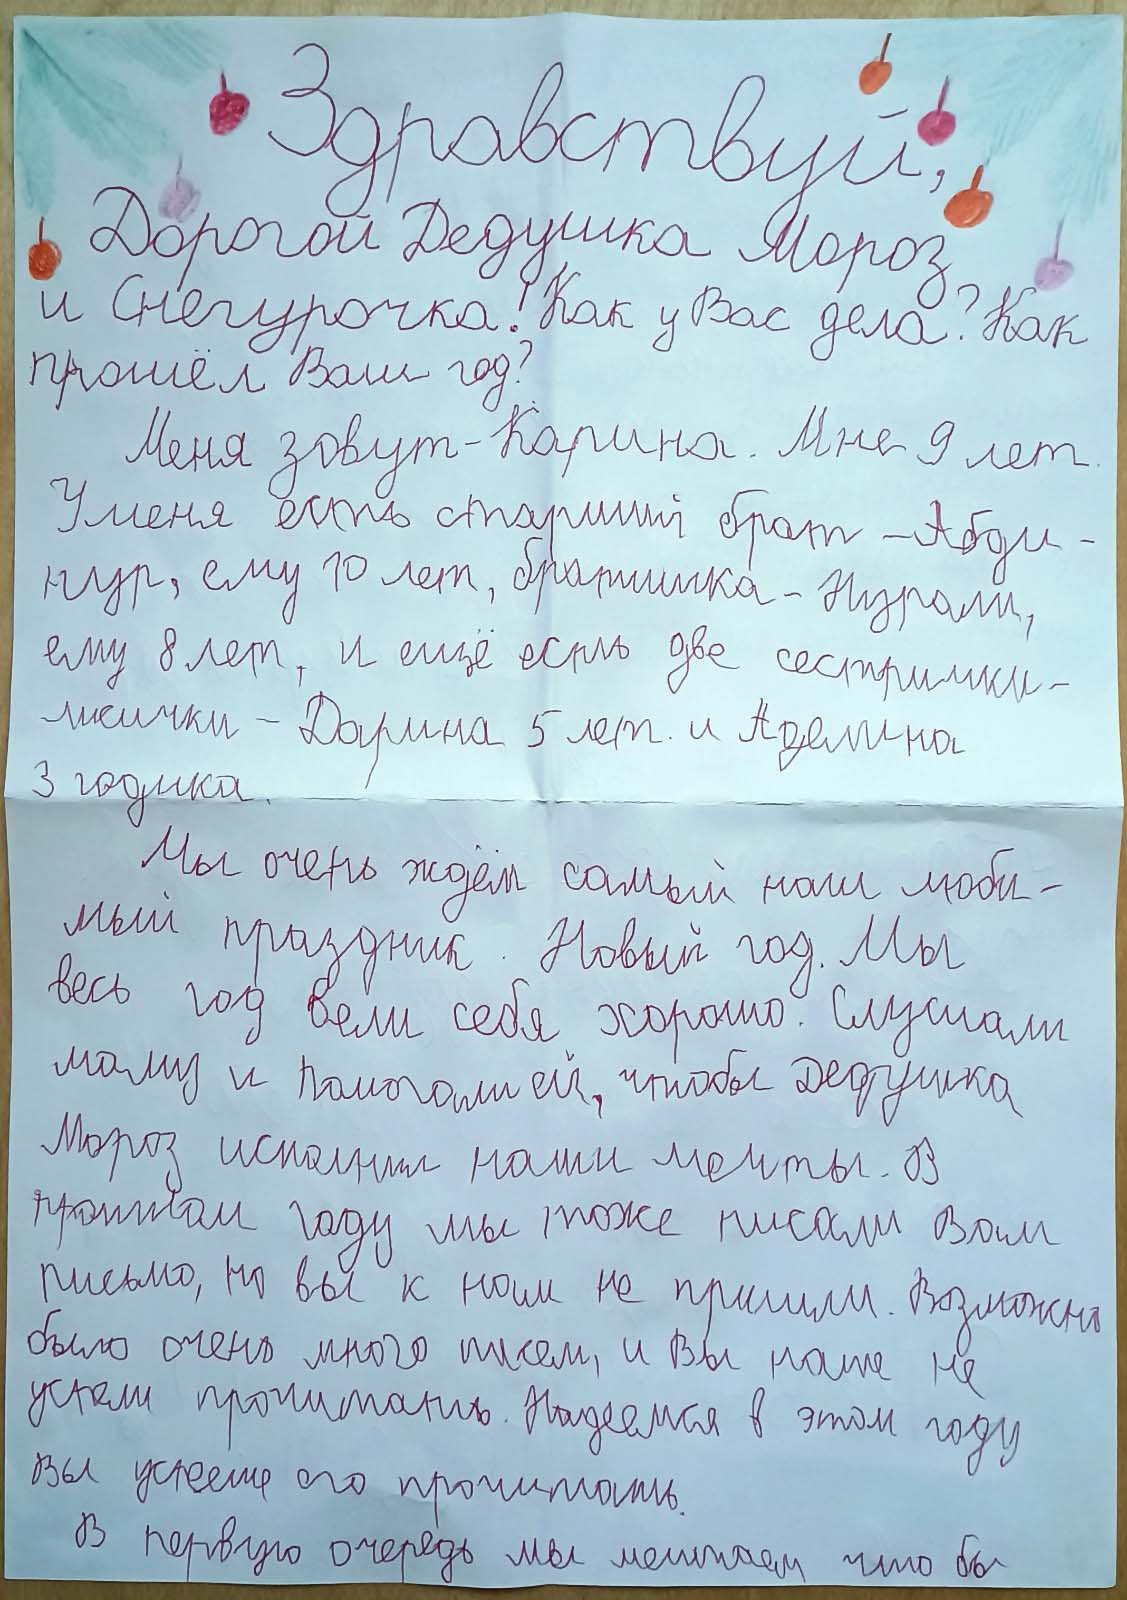 Здравствуй,
Дорогой Дедушка Мороз
и Снегурочка! Как у Вас дела? Как
прошёл Ваш год?
Меня зовут - Карина. Мне 9 лет.
У меня есть старший брат - Абди-
нур, ему 10 лет, братишка - Нурали,
ему 8 лет, и ещё есть две сестрички-
лисички - Дарина 5 лет. и Аделина
3 годика.
Мы очень ждём самый наш люби-
мый праздник. Новый год. Мы
весь год вели себя хорошо. Слушали
маму и помогали ей, чтобы Дедушка
Мороз исполнил наши мечты. В
прошлом году мы тоже писали Вам
письмо, но вы к нам не пришли. Возможно
было очень много писем, и Вы наше не
успели прочитать. Надеемся в этом году
Вы успеете его прочитать.
В первую очередь мы мечтаем что бы